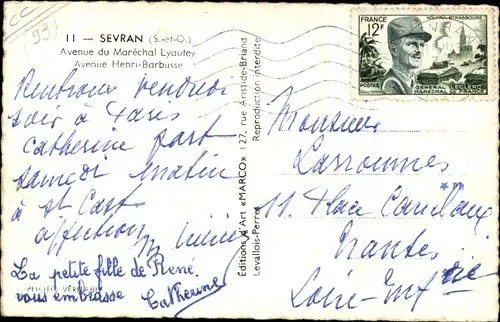 CC
(93)
11 — SEVRAN (S.-et-O.)
Avenue du Maréchal Lyautey
Avenue Henri-Barbusse
Rentrons vendredi
soir à Paris
Catherine part
samedi matin
à St Cast
affection
La petite fille de René
vous embrasse Catherine
Editions d'Art «MARCO» 127, rue Aristide-Briand
Levallois-Perret
Reproduction interdite
KOUFRA-STRASBOURG
FRANCE
12F
POSTES
GENERAL LECLERC
MARECHAL DE FRANCE
Monsieur
Larroumes
11 Place Canclaux
Nantes
Loire-Infrie